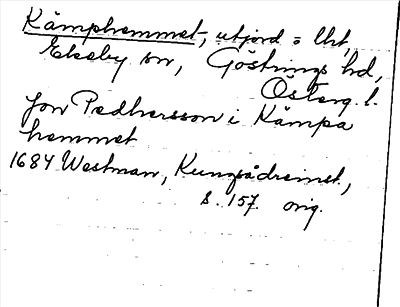 Kämphemmet, utjord = lht,
Ekeby sn, Göstrings hd,
Österg. l.
Jon Pedhersson i Kämpa
hemmet
1684 Westman, Kungsådreinst,
s. 157. orig.